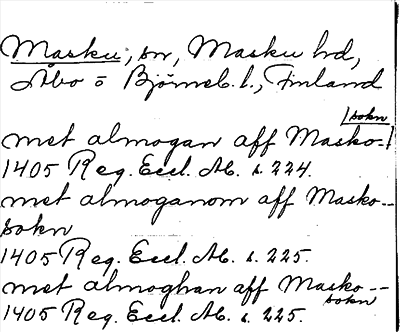 Masku, sn, Masku hd,
Åbo o Björneb. l., Finland
met almogan aff Masko-
sokn
1405 Reg. Eccl. Ab. s. 224.
met almoganom aff Masko--
sokn
1405 Reg. Eccl. Ab. s. 225.
met almoghan aff Masko--
sokn
1405 Reg. Eccl. Ab. s. 225.